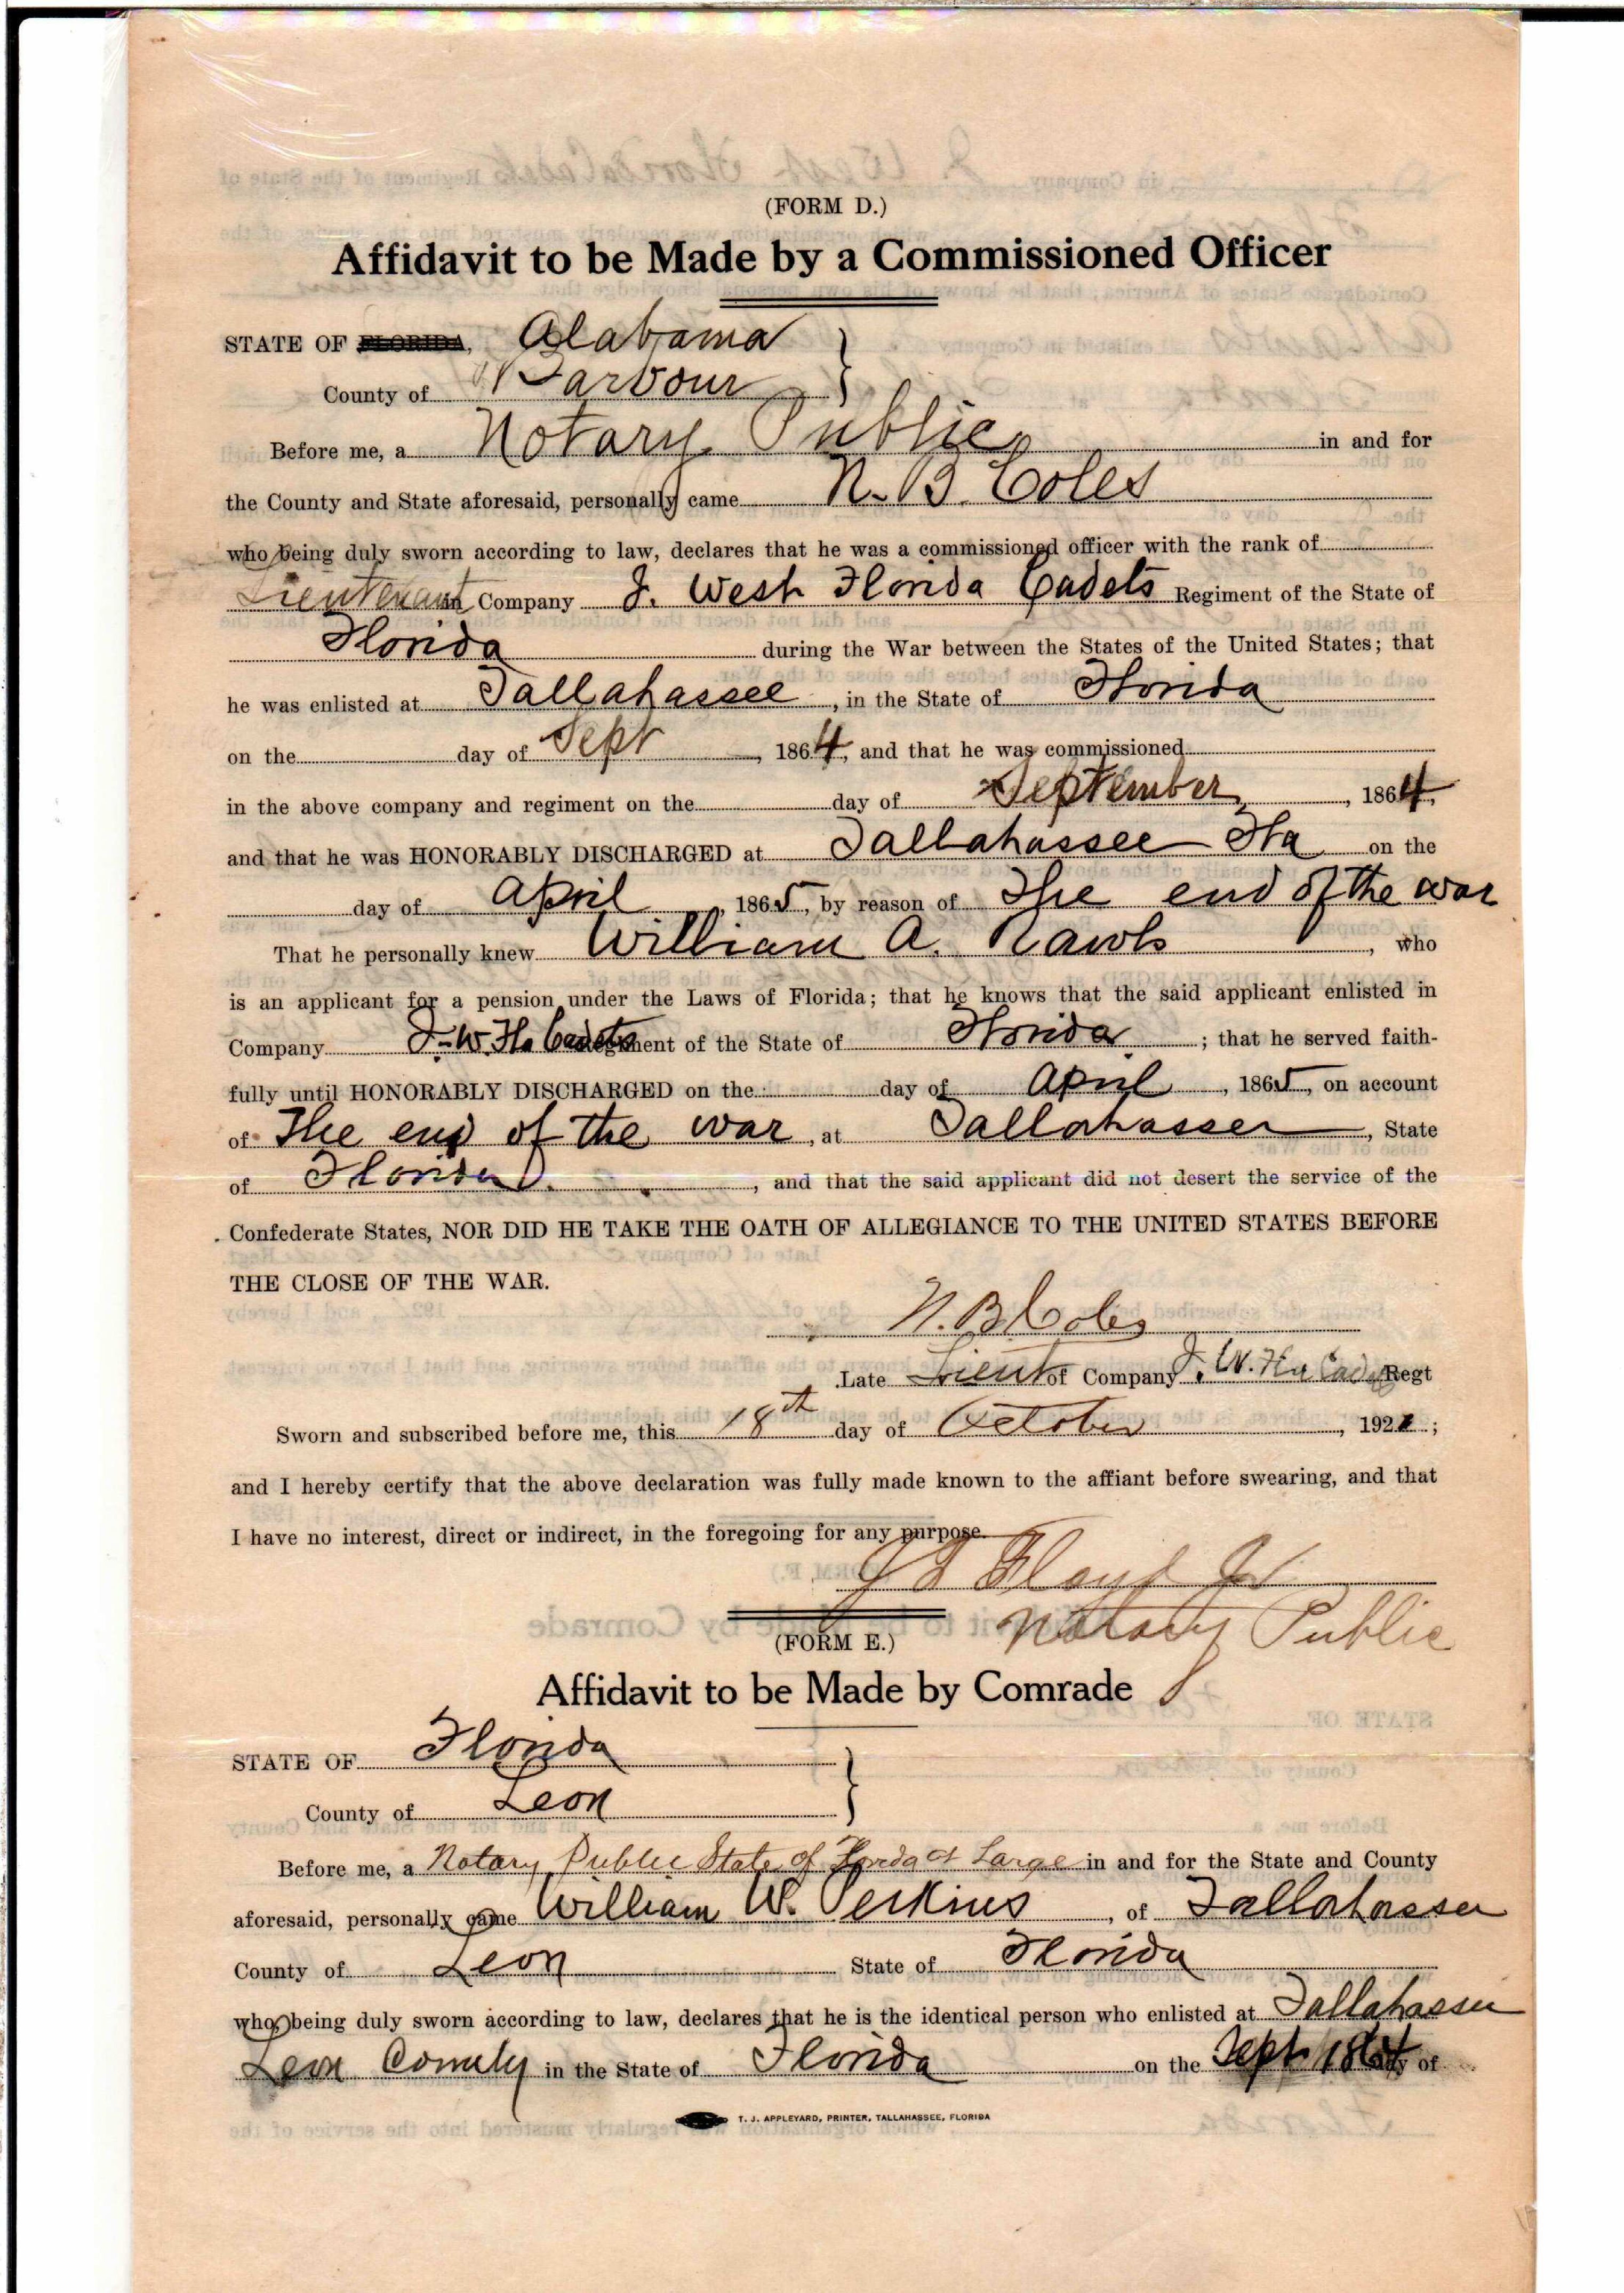 (FORM D.)
Affidavit to be Made by a Commissioned Officer
STATE OF FLORIDA, Alabama
County of Barbour
Before me, a Notary Public in and for
the County and State aforesaid, personally came N. B. Coles
who being duly sworn according to law, declares that he was a commissioned officer with the rank of
Lieutenant in Company J. West Florida Cadets Regiment of the State of
Florida during the War between the States of the United States; that
he was enlisted at Tallahassee, in the State of Florida
on the day of Sept, 1864, and that he was commissioned
in the above company and regiment on the day of September, 1864,
and that he was HONORABLY DISCHARGED at Tallahassee Fla on the
day of April, 1865, by reason of The end of the war
That he personally knew William A. Rawls, who
is an applicant for a pension under the Laws of Florida; that he knows that the said applicant enlisted in
Company J. W. Fla Cadets Regiment of the State of Florida; that he served faith-
fully until HONORABLY DISCHARGED on the day of April, 1865, on account
of The end of the war, at Tallahassee, State
of Florida, and that the said applicant did not desert the service of the
Confederate States, NOR DID HE TAKE THE OATH OF ALLEGIANCE TO THE UNITED STATES BEFORE
THE CLOSE OF THE WAR.
N. B. Coles
Late Lieut of Company J. W. Fla Cadets Regt
Sworn and subscribed before me, this 18th day of October, 1921;
and I hereby certify that the above declaration was fully made known to the affiant before swearing, and that
I have no interest, direct or indirect, in the foregoing for any purpose.
Floyd Jr
Notary Public
(FORM E.)
Affidavit to be Made by Comrade
STATE OF Florida
County of Leon
Before me, a Notary Public State of Florida at Large in and for the State and County
aforesaid, personally came William W. Perkins, of Tallahassee
County of Leon State of Florida
who being duly sworn according to law, declares that he is the identical person who enlisted at Tallahassee
Leon County in the State of Florida on the Sept 1864 day of
T. J. APPLEYARD, PRINTER, TALLAHASSEE, FLORIDA